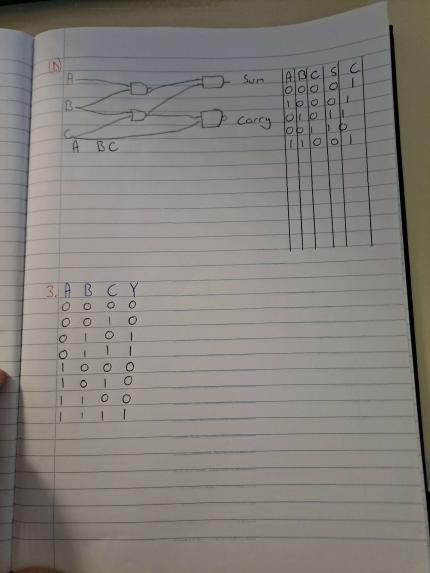 (1)
A
B
C
A B C
Sum
Carry
A B C S C
0 0 0 0 1
1 0 0 0 1
0 1 0 1 1
0 0 1 1 0
1 1 0 0 1
3. A B C Y
0 0 0 0
0 0 1 0
0 1 0 1
0 1 1 1
1 0 0 0
1 0 1 0
1 1 0 0
1 1 1 1